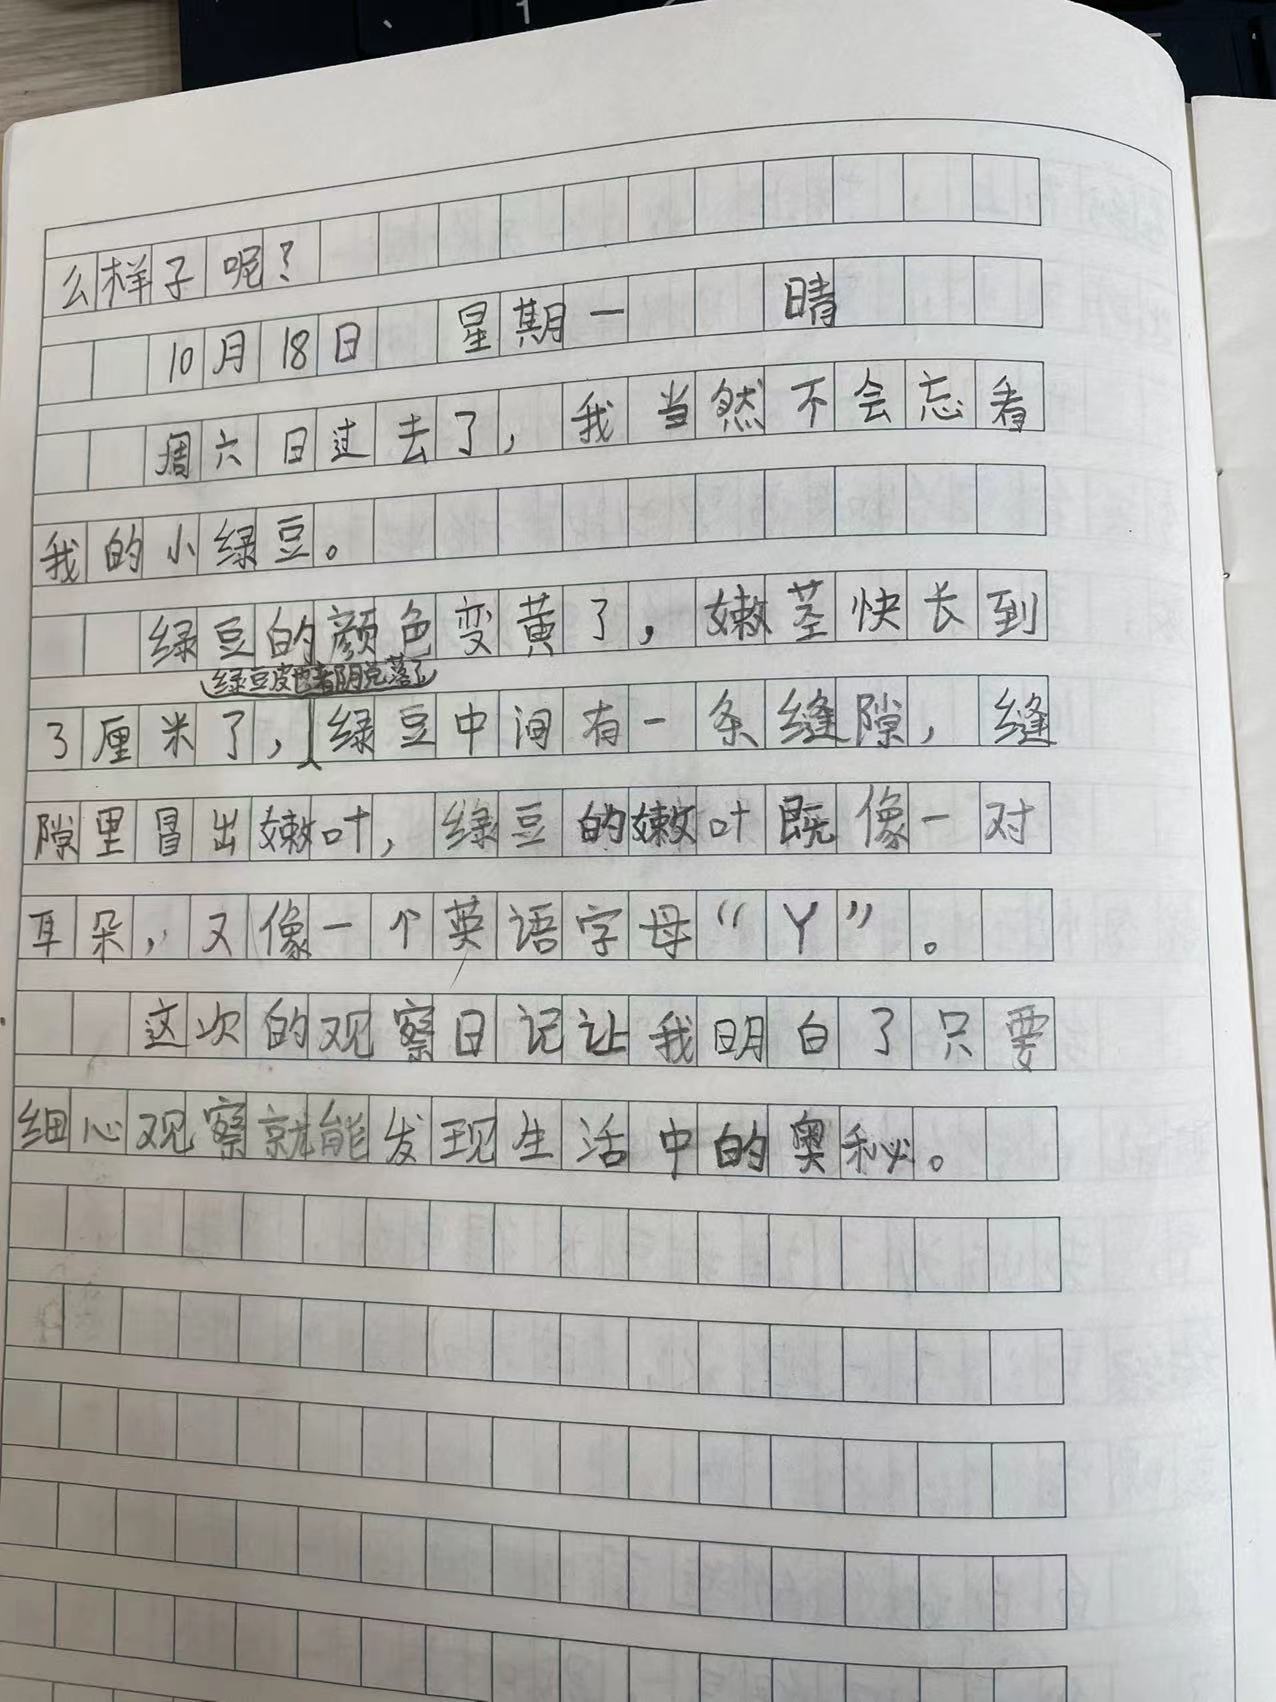 么样子呢？
10月18日 星期一 晴
周六日过去了，我当然不会忘看
我的小绿豆。
绿豆的颜色变黄了，嫩茎快长到
绿豆皮也都脱落了
3厘米了，绿豆中间有一条缝隙，缝
隙里冒出嫩叶，绿豆的嫩叶既像一对
耳朵，又像一个英语字母“Y”。
这次的观察日记让我明白了只要
细心观察就能发现生活中的奥秘。